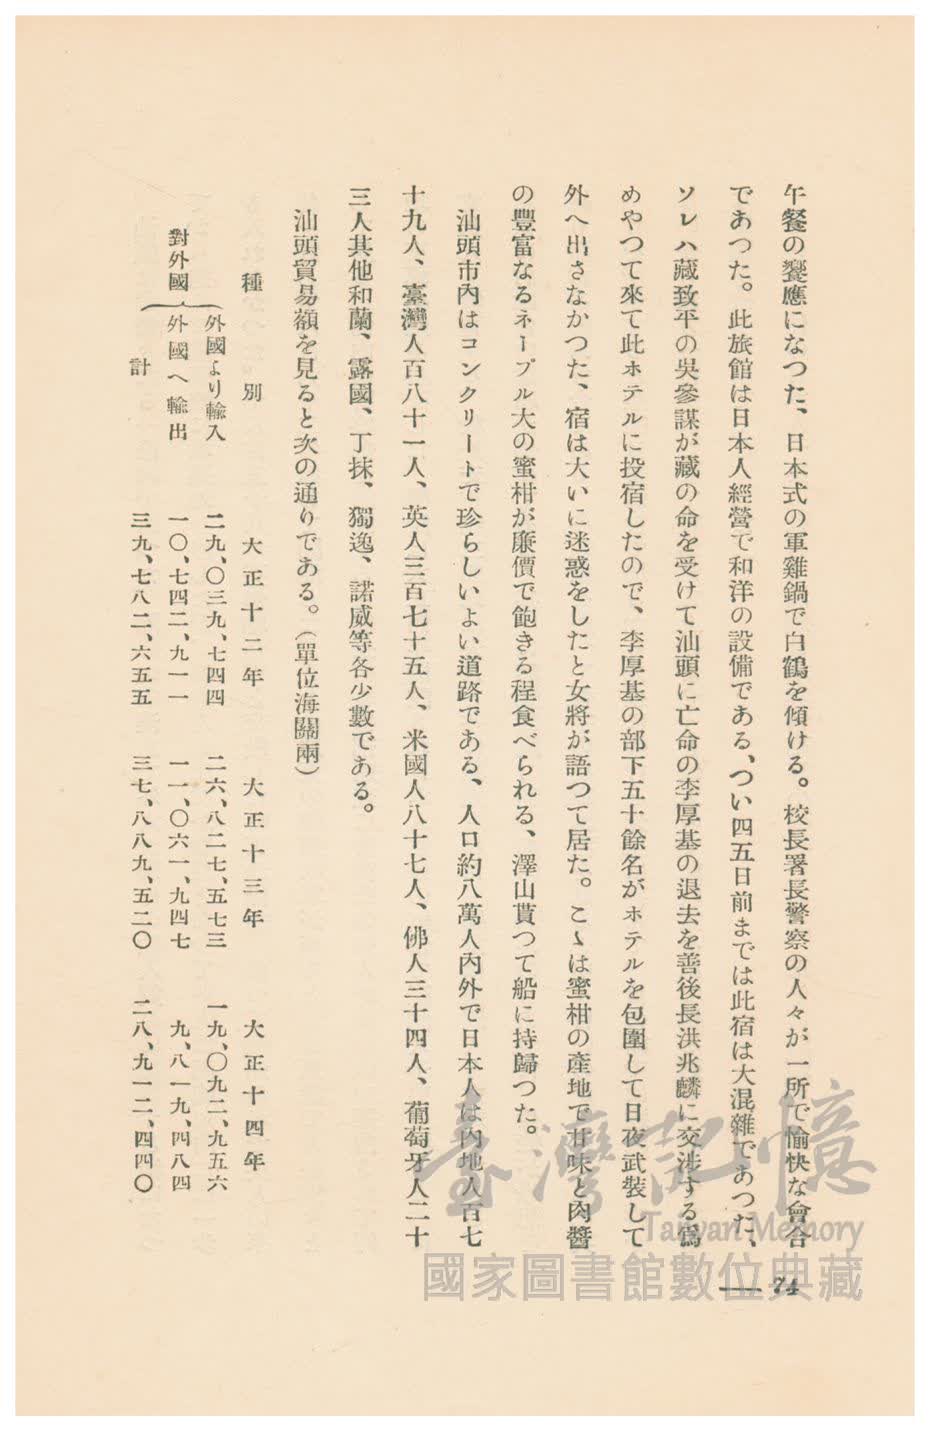 午餐の饗應になつた、日本式の軍雞鍋で白鶴を傾ける。校長署長警察の人々が一所で愉快な會合
であつた。此旅館は日本人經營で和洋の設備である、つい四五日前までは此宿は大混雜であつた、
ソレハ藏致平の吳參謀が藏の命を受けて汕頭に亡命の李厚基の退去を善後長洪兆麟に交涉する爲
めやつて來て此ホテルに投宿したので、李厚基の部下五十餘名がホテルを包圍して日夜武裝して
外へ出さなかつた、宿は大いに迷惑をしたと女將が語つて居た。こゝは蜜柑の產地で甘味と肉醬
の豐富なるネーブル大の蜜柑が廉價で飽きる程食べられる、澤山貰つて船に持歸つた。
汕頭市內はコンクリートで珍らしいよい道路である、人口約八萬人內外で日本人は內地人百七
十九人、臺灣人百八十一人、英人三百七十五人、米國人八十七人、佛人三十四人、葡萄牙人二十
三人其他和蘭、露國、丁抹、獨逸、諾威等各少數である。
汕頭貿易額を見ると次の通りである。(單位海關兩)
種別　大正十二年　大正十三年　大正十四年
對外國
外國より輸入　二九、〇三九、七四四　二六、八二七、五七三　一九、〇九二、九五六
外國へ輸出　一〇、七四二、九一一　一一、〇六一、九四七　九、八一九、四八四
計　三九、七八二、六五五　三七、八八九、五二〇　二八、九一二、四四〇
74
臺灣記憶
Taiwan Memory
國家圖書館數位典藏